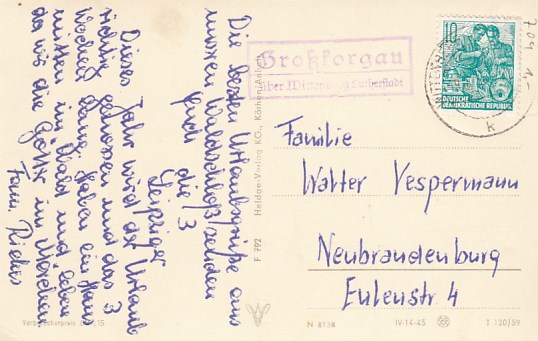 Die besten Urlaubsgrüße aus
unserem Waldschloß senden
Euch die 3
Leipziger
Dieses Jahr wird der Urlaub
richtig genossen und das 3
Wochen lang. Haben ein Haus
mitten im Wald und leben
da wie die Götter im Märchen
Fam.
Verbraucherpreis DM 0,15
F 792 Heldge-Verlag KG., Köthen/Anh.
Großkorgau
über Wittenberg Lutherstadt
WITTENBERG
k
10
DEUTSCHE
DEMOKRATISCHE REPUBLIK
704 1-
Familie
Walter Vespermann
Neubrandenburg
Eulenstr. 4
N 8138 IV-14-45 T 120/59